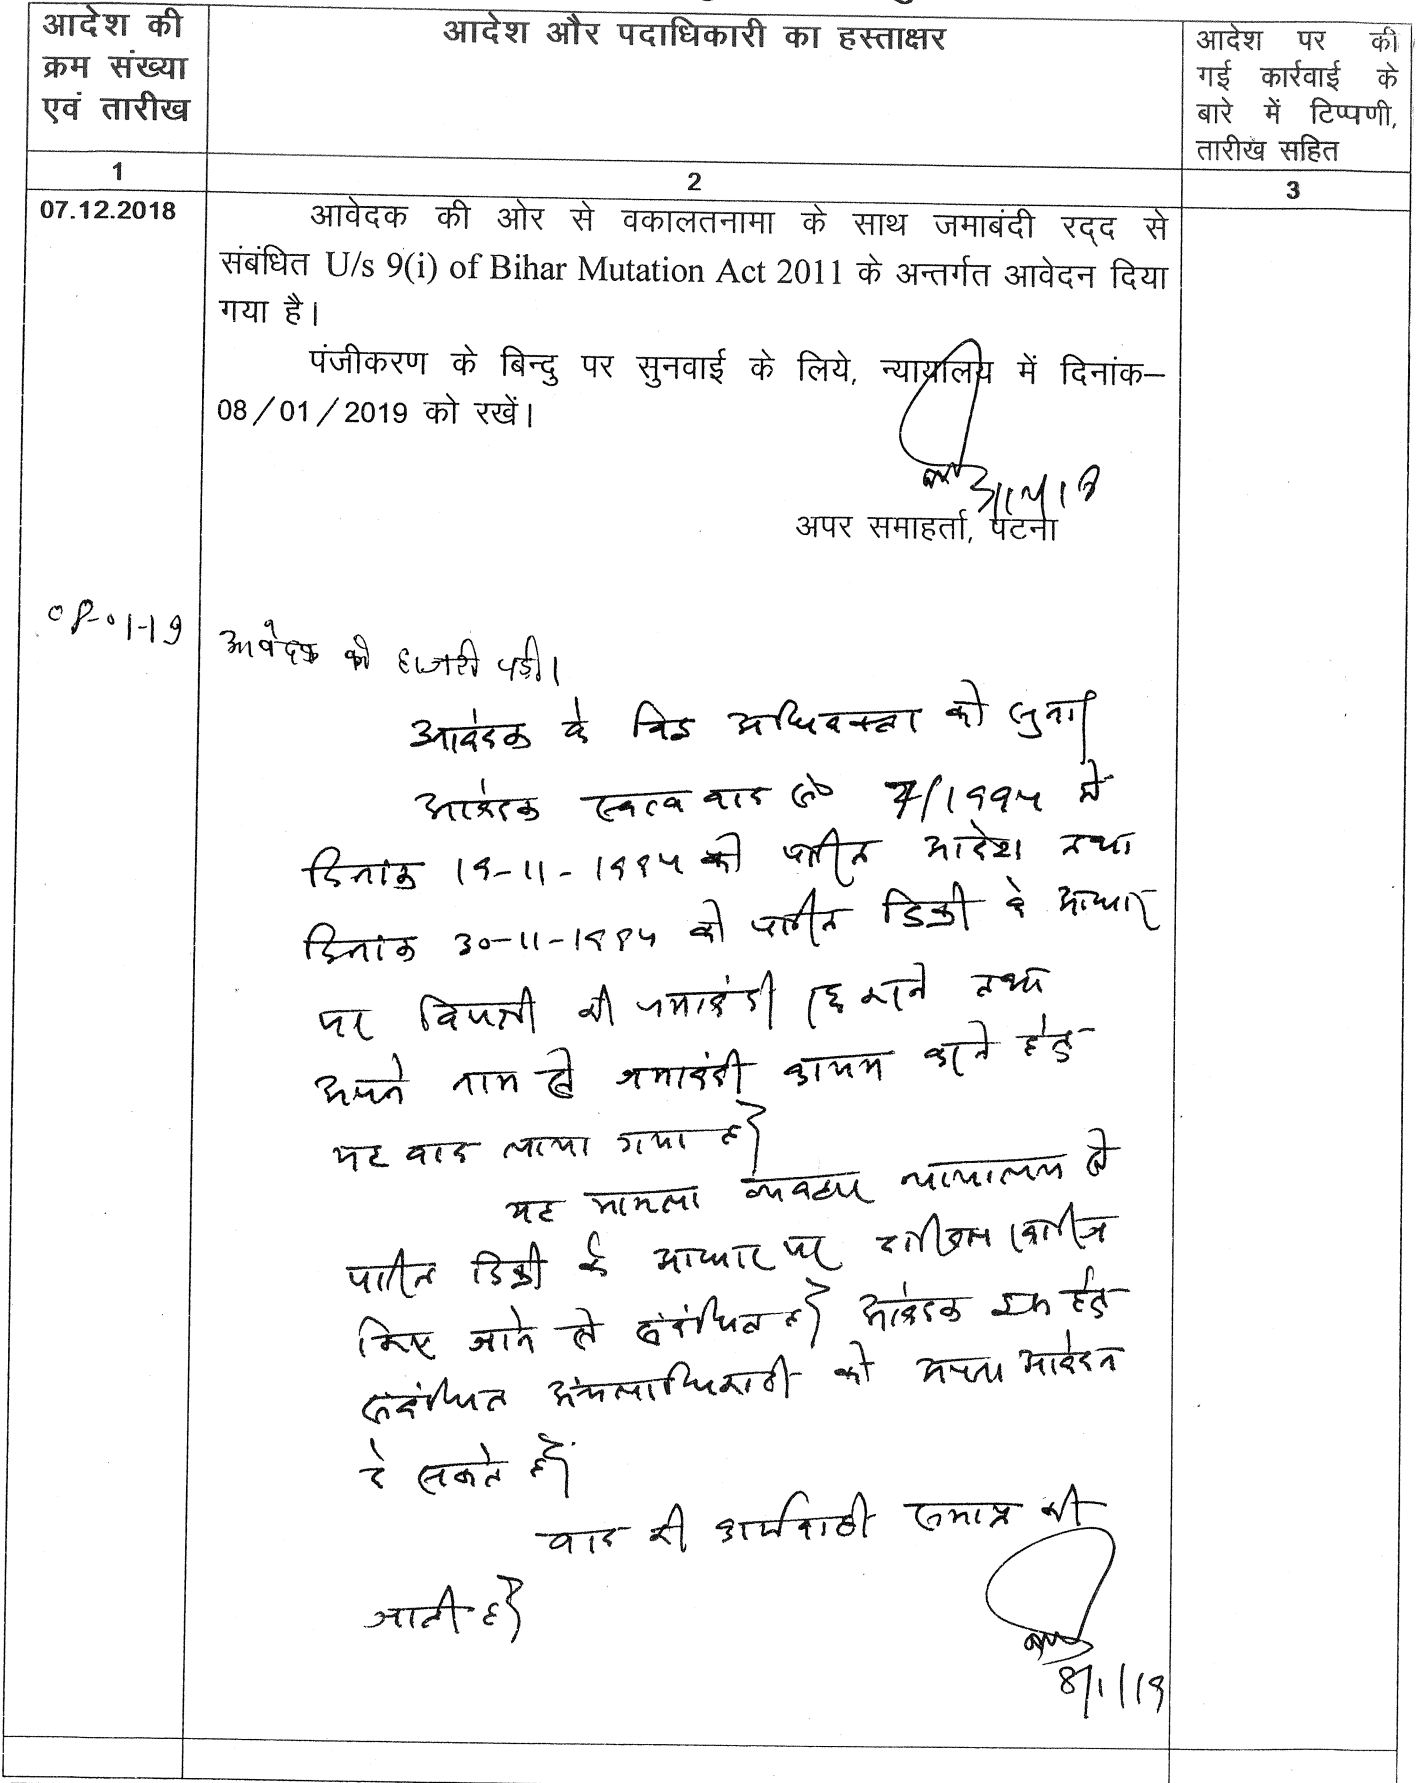 आदेश की
क्रम संख्या
एवं तारीख
आदेश और पदाधिकारी का हस्ताक्षर
आदेश पर की
गई कार्रवाई के
बारे में टिप्पणी,
तारीख सहित
1
2
3
07.12.2018
आवेदक की ओर से वकालतनामा के साथ जमाबंदी रद्द से
संबंधित U/s 9(i) of Bihar Mutation Act 2011 के अन्तर्गत आवेदन दिया
गया है।
पंजीकरण के बिन्दु पर सुनवाई के लिये, न्यायालय में दिनांक–
08/01/2019 को रखें।
अपर समाहर्ता, पटना
08-01-19
आवेदक की हाजरी पड़ी।
आवेदक के विद्व अधिवक्ता को सुना।
आवेदक स्वत्व वाद सं० 7/1994 में
दिनांक 19-11-1994 को पारित आदेश तथा
दिनांक 30-11-1994 को पारित डिक्री के आधार
पर विपक्षी की जमाबंदी रद्द करने तथा
अपने नाम से जमाबंदी कायम करने हेतु
यह वाद लाया गया है।
यह मामला व्यवहार न्यायालय से
पारित डिक्री के आधार पर दाखिल खारिज
किए जाने से संबंधित है। आवेदक इस हेतु
संबंधित अंचलाधिकारी को अपना आवेदन
दे सकते हैं।
वाद की कार्यवाही समाप्त की
जाती है।
8/1/19